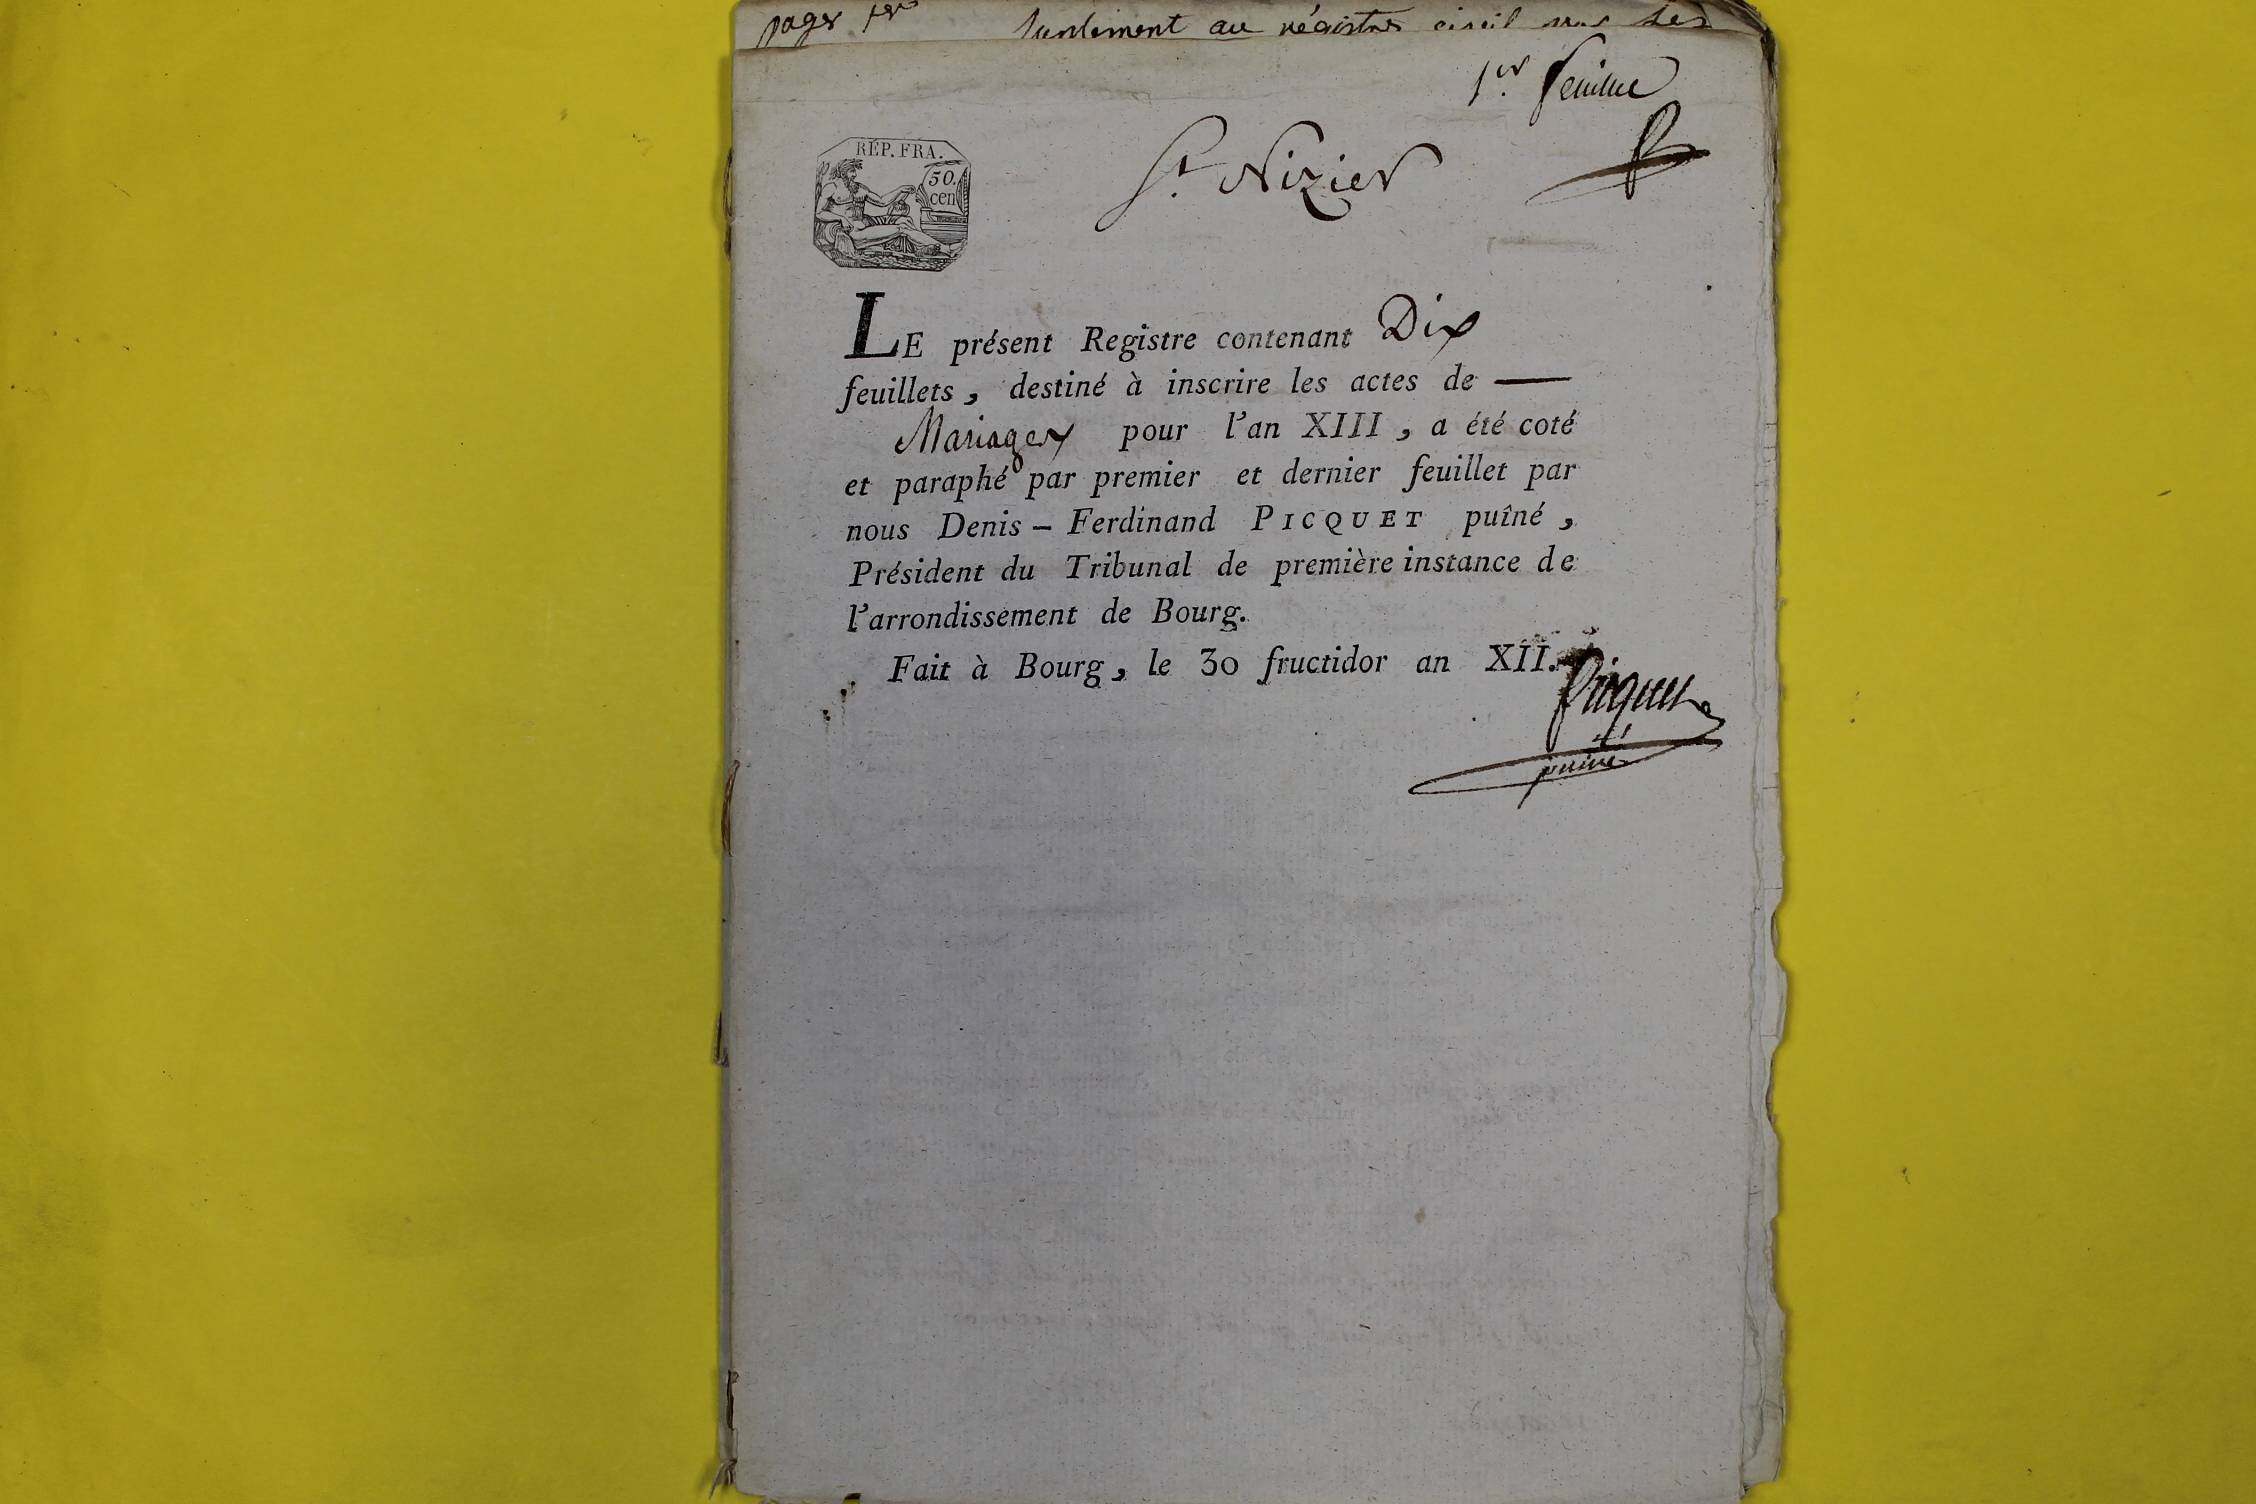 pages 1er seulement au régistre civil sur les
1er feuillet
RÉP. FRA.
50.
cen
St Nizier
LE présent Registre contenant Dix
feuillets, destiné à inscrire les actes de —
Mariages pour l'an XIII, a été coté
et paraphé par premier et dernier feuillet par
nous Denis-Ferdinand PICQUET puîné,
Président du Tribunal de première instance de
l'arrondissement de Bourg.
Fait à Bourg, le 30 fructidor an XII.
Picquet
puiné